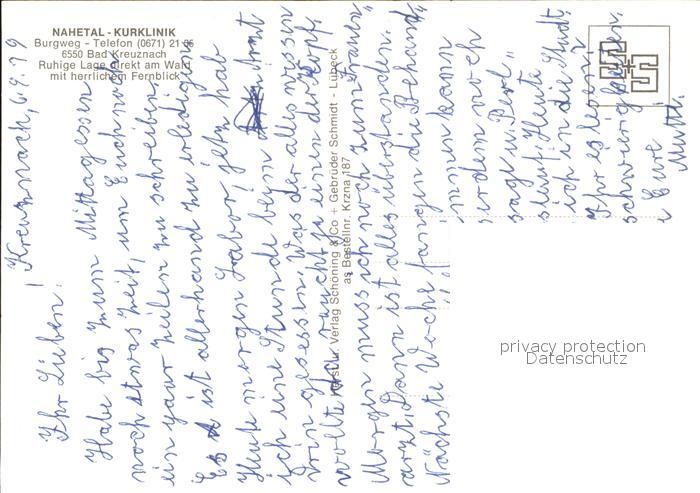 NAHETAL - KURKLINIK
Burgweg - Telefon (0671) 21
6550 Bad Kreuznach
Ruhige Lage direkt am Wald
mit herrlichem Fernblick
Kreuznach, 6.9.79
Ihr Lieben!
Habe bis zum Mittagessen
noch etwas Zeit, um Euch noch
ein paar Zeilen zu schreiben.
Es ist allerhand zu erledigen
Heute morgen Labor, jetzt hab
ich eine Stunde beim
drin gesessen. Was der alles wissen
wollte, da raucht ja einen der Kopf.
Morgen muss ich noch zum Frauen"
arzt. Dann ist alles überstanden.
Nächste Woche fangen die Behand"
immer kann
serdem noch
sage u. Perl"
Heute
ich in die Stadt.
Ihr es lesen?
schwierig
Eure
Mutti.
Verlag Schöning & Co + Gebrüder Schmidt - Lübeck
as Bestellnr. Krzna 187
privacy protection
Datenschutz